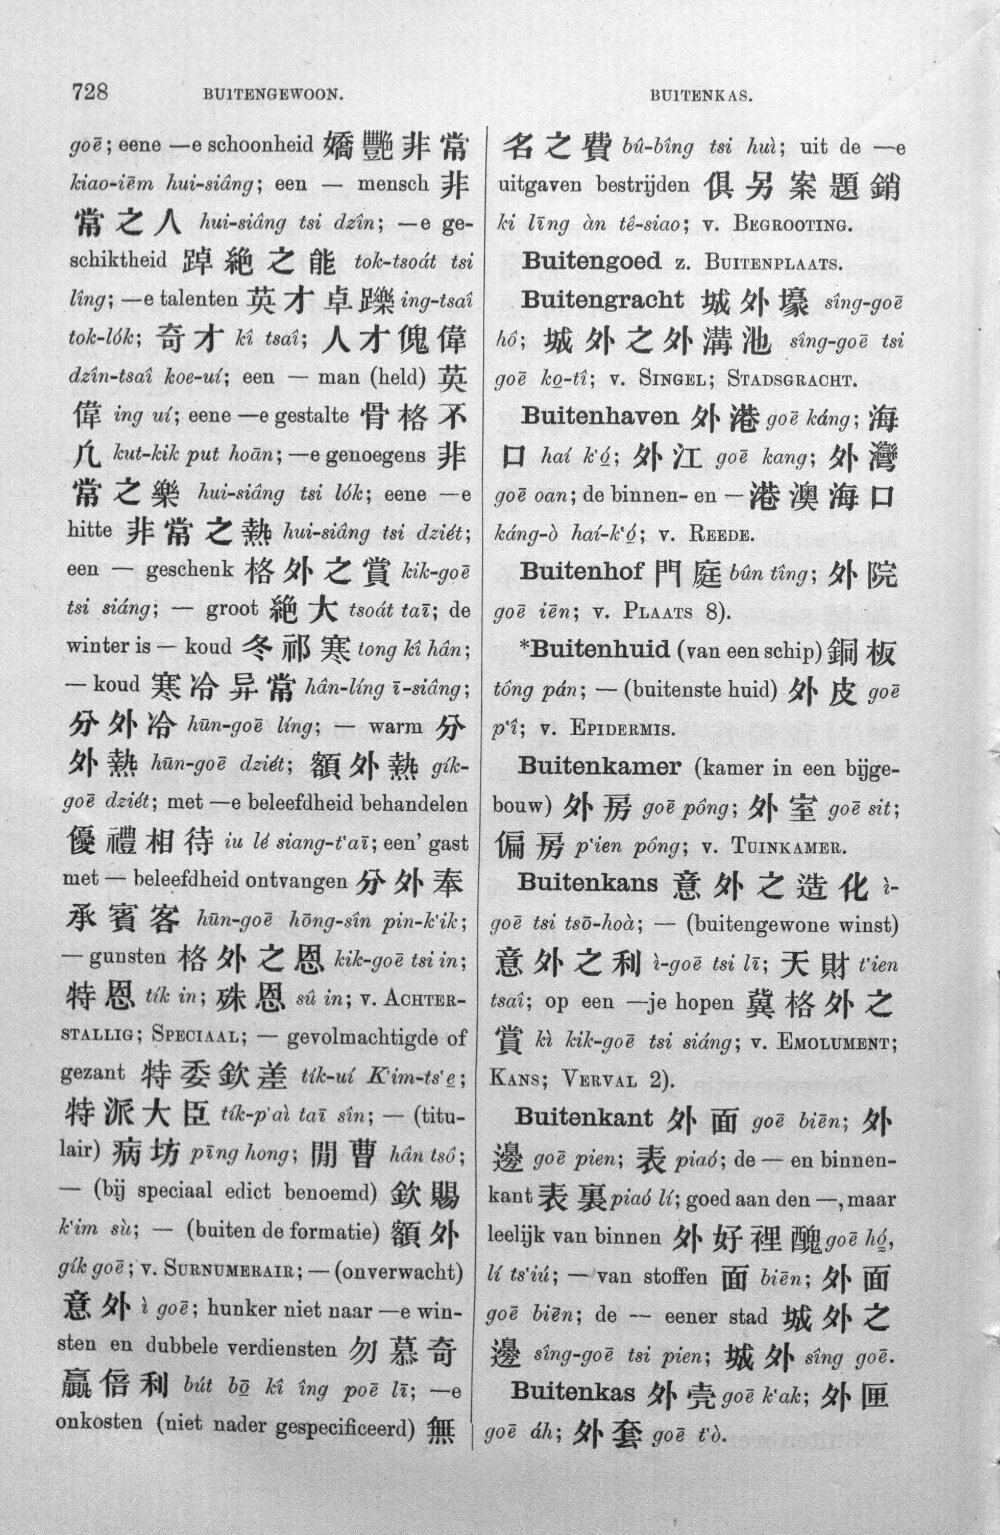 728
BUITENGEWOON.
BUITENKAS.
goē; eene —e schoonheid 嬌艷非常
kiao-iēm hui-siâng; een — mensch 非
常之人 hui-siâng tsi dzîn; —e ge-
schiktheid 踔絶之能 tok-tsoát tsi
lîng; —e talenten 英才卓躒 ing-tsaî
tok-lók; 奇才 kî tsaî; 人才傀偉
dzîn-tsaî koe-uí; een — man (held) 英
偉 ing uí; eene —e gestalte 骨格不
凢 kut-kik put hoān; —e genoegens 非
常之樂 hui-siâng tsi lók; eene —e
hitte 非常之熱 hui-siâng tsi dziét;
een — geschenk 格外之賞 kik-goē
tsi siáng; — groot 絶大 tsoát taī; de
winter is — koud 冬祁寒 tong kî hân;
— koud 寒冷异常 hân-líng ī-siâng;
分外冷 hūn-goē líng; — warm 分
外熱 hūn-goē dziét; 額外熱 gík-
goē dziét; met —e beleefdheid behandelen
優禮相待 iu lé siang-t‘aī; een’ gast
met — beleefdheid ontvangen 分外奉
承賓客 hūn-goē hōng-sîn pin-k‘ik;
— gunsten 格外之恩 kik-goē tsi in;
特恩 tík in; 殊恩 sû in; v. ACHTER-
STALLIG; SPECIAAL; — gevolmachtigde of
gezant 特委欽差 tík-uí K‘im-ts‘e̱;
特派大臣 tík-p‘aì taī sîn; — (titu-
lair) 病坊 pīng hong; 閒曹 hân tsó;
— (bij speciaal edict benoemd) 欽賜
k‘im sù; — (buiten de formatie) 額外
gík goē; v. SURNUMERAIR; — (onverwacht)
意外 ì goē; hunker niet naar —e win-
sten en dubbele verdiensten 勿慕奇
贏倍利 bút bō̱ kî îng poē lī; —e
onkosten (niet nader gespecificeerd) 無
名之費 bû-bîng tsi huì; uit de —e
uitgaven bestrijden 俱另案題銷
ki līng àn tê-siao; v. BEGROOTING.
Buitengoed z. BUITENPLAATS.
Buitengracht 城外壕 sîng-goē
hô; 城外之外溝池 sîng-goē tsi
goē ko̱-tî; v. SINGEL; STADSGRACHT.
Buitenhaven 外港 goē káng; 海
口 haí k‘ó̱; 外江 goē kang; 外灣
goē oan; de binnen- en — 港澳海口
káng-ò haí-k‘ó̱; v. REEDE.
Buitenhof 門庭 bûn tîng; 外院
goē iēn; v. PLAATS 8).
*Buitenhuid (van een schip) 銅板
tông pán; — (buitenste huid) 外皮 goē
p‘î; v. EPIDERMIS.
Buitenkamer (kamer in een bijge-
bouw) 外房 goē póng; 外室 goē sit;
偏房 p‘ien póng; v. TUINKAMER.
Buitenkans 意外之造化 ì-
goē tsi tsō-hoà; — (buitengewone winst)
意外之利 ì-goē tsi lī; 天財 t‘ien
tsaî; op een —je hopen 冀格外之
賞 kì kik-goē tsi siáng; v. EMOLUMENT;
KANS; VERVAL 2).
Buitenkant 外面 goē biēn; 外
邊 goē pien; 表 piaó; de — en binnen-
kant 表裏 piaó lí; goed aan den —, maar
leelijk van binnen 外好裡醜 goē hó̱,
lí ts‘iú; — van stoffen 面 biēn; 外面
goē biēn; de — eener stad 城外之
邊 sîng-goē tsi pien; 城外 sîng goē.
Buitenkas 外壳 goē k‘ak; 外匣
goē áh; 外套 goē t‘ò.